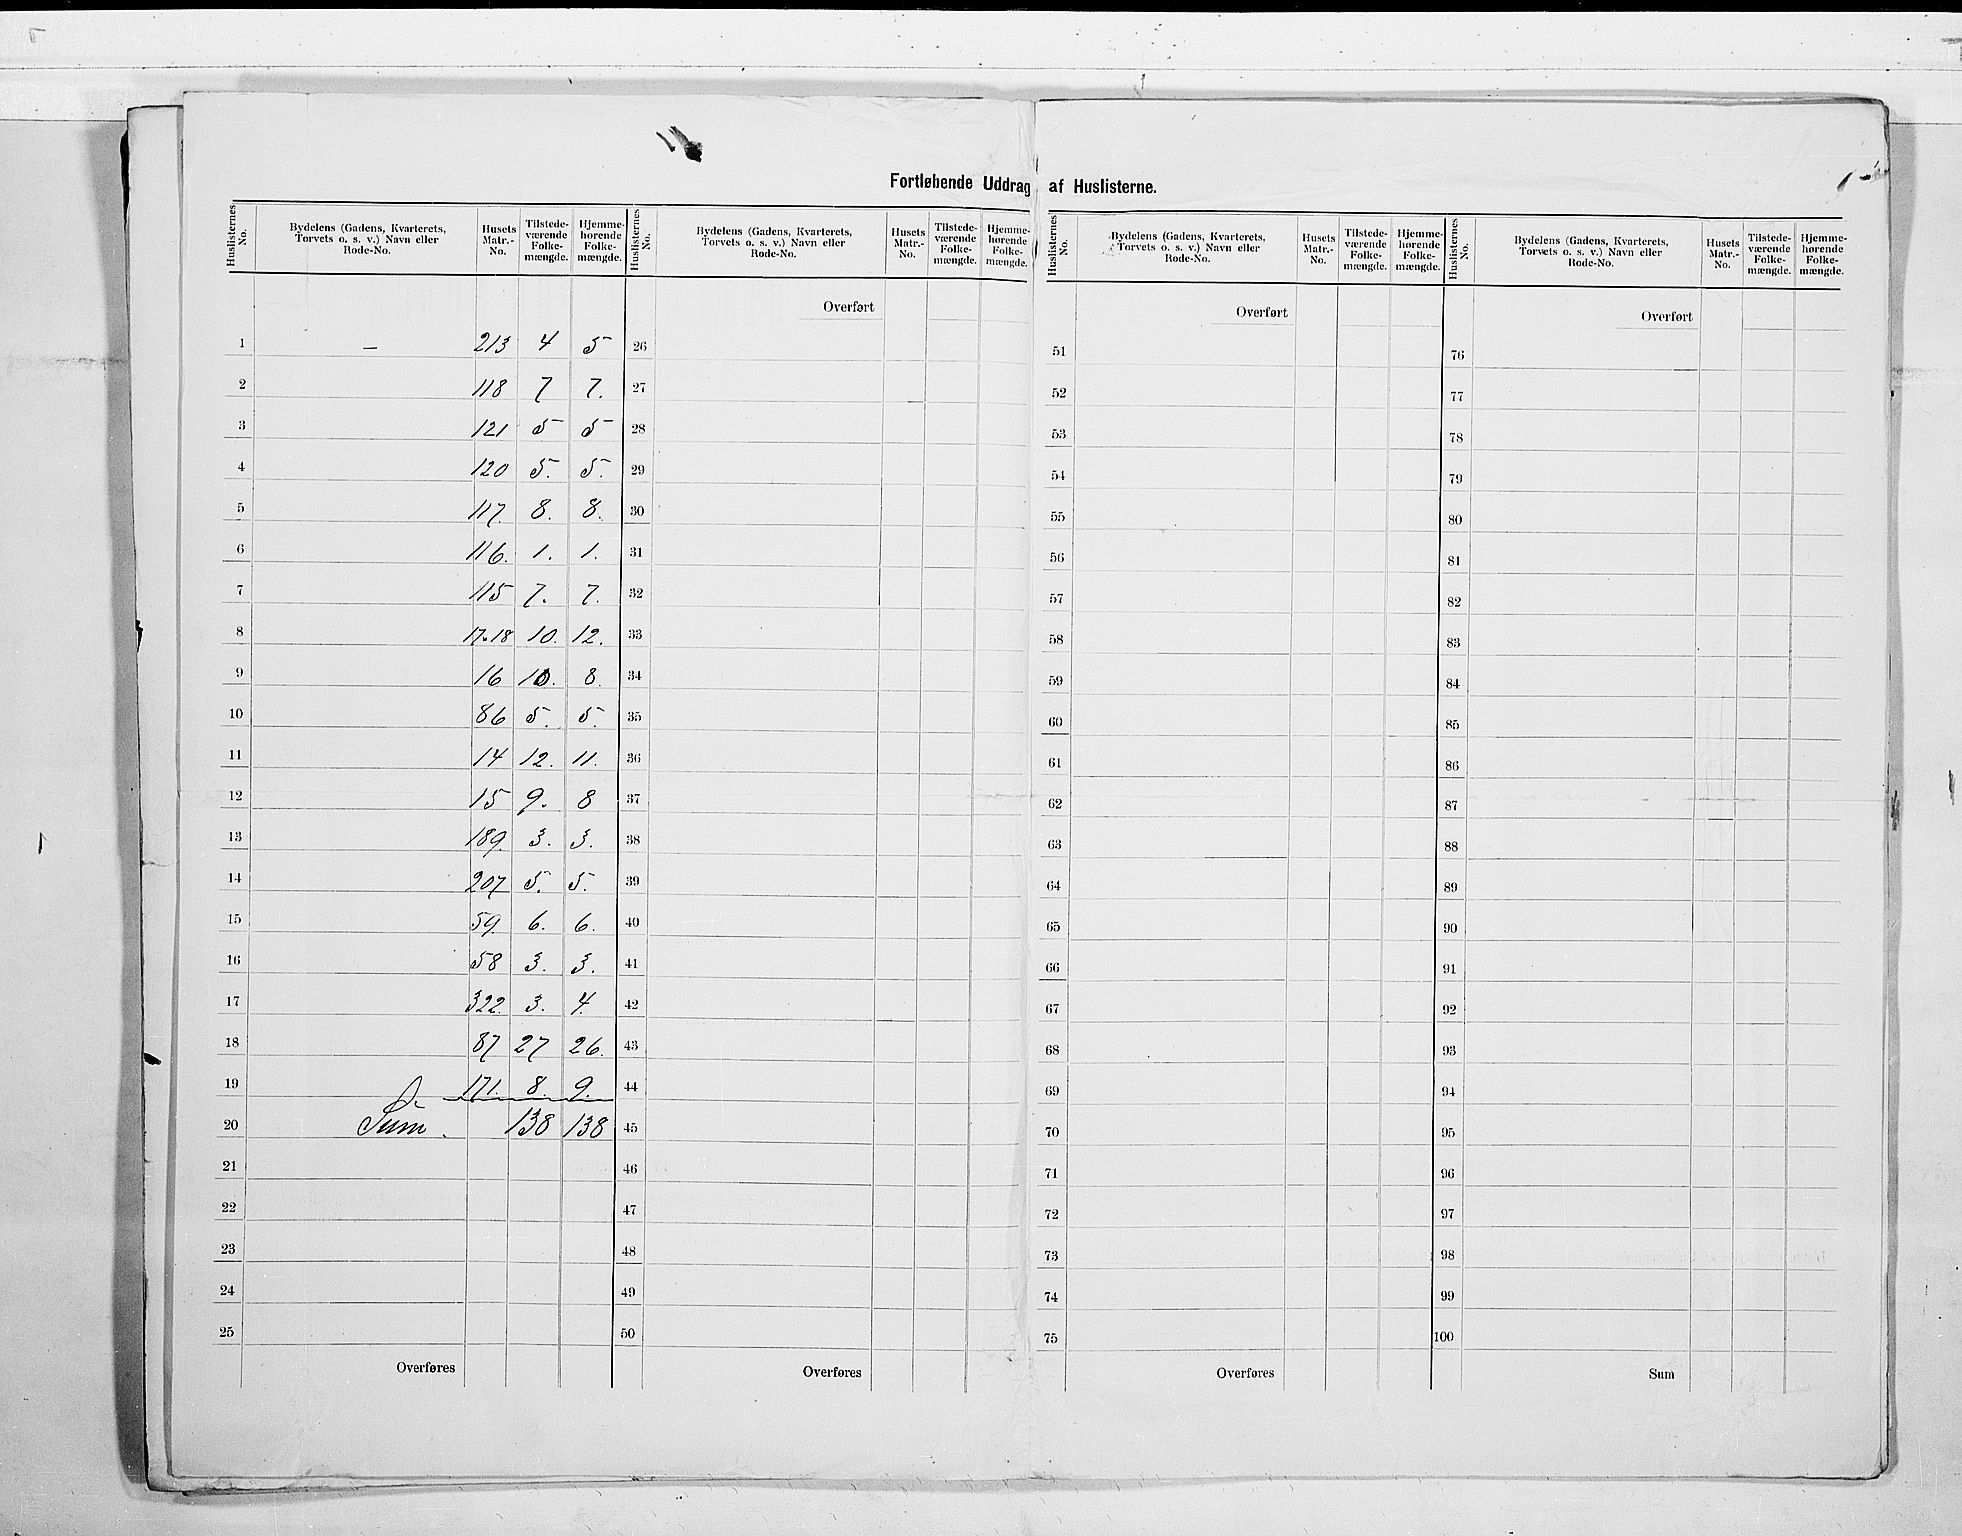 Fortløbende Uddrag af Huslisterne.
Huslisternes No. | Bydelens (Gadens, Kvarterets, Torvets o. s. v.) Navn eller Rode-No. | Husets Matr.-No. | Tilstede-værende Folke-mængde. | Hjemme-hørende Folke-mængde.
1 – 213 4 5
2 118 7 7.
3 121 5 5
4 120 5. 5.
5 117. 8. 8.
6 116. 1. 1.
7 115 7. 7.
8 17-18 10. 12.
9 16 10. 8.
10 86 5. 5.
11 14 12. 11.
12 15 9. 8
13 189. 3. 3.
14 207 5. 5.
15 59. 6. 6.
16 58 3. 3.
17 322. 3. 4.
18 87 27 26.
19 171. 8. 9.
20 Sum. 138 138
21
22
23
24
25
Overføres
Huslisternes No. | Bydelens (Gadens, Kvarterets, Torvets o. s. v.) Navn eller Rode-No. | Husets Matr.-No. | Tilstede-værende Folke-mængde. | Hjemme-hørende Folke-mængde.
Overført
26
27
28
29
30
31
32
33
34
35
36
37
38
39
40
41
42
43
44
45
46
47
48
49
50
Overføres
Huslisternes No. | Bydelens (Gadens, Kvarterets, Torvets o. s. v.) Navn eller Rode-No. | Husets Matr.-No. | Tilstede-værende Folke-mængde. | Hjemme-hørende Folke-mængde.
Overført
51
52
53
54
55
56
57
58
59
60
61
62
63
64
65
66
67
68
69
70
71
72
73
74
75
Overføres
Huslisternes No. | Bydelens (Gadens, Kvarterets, Torvets o. s. v.) Navn eller Rode-No. | Husets Matr.-No. | Tilstede-værende Folke-mængde. | Hjemme-hørende Folke-mængde.
Overført
76
77
78
79
80
81
82
83
84
85
86
87
88
89
90
91
92
93
94
95
96
97
98
99
100
Sum